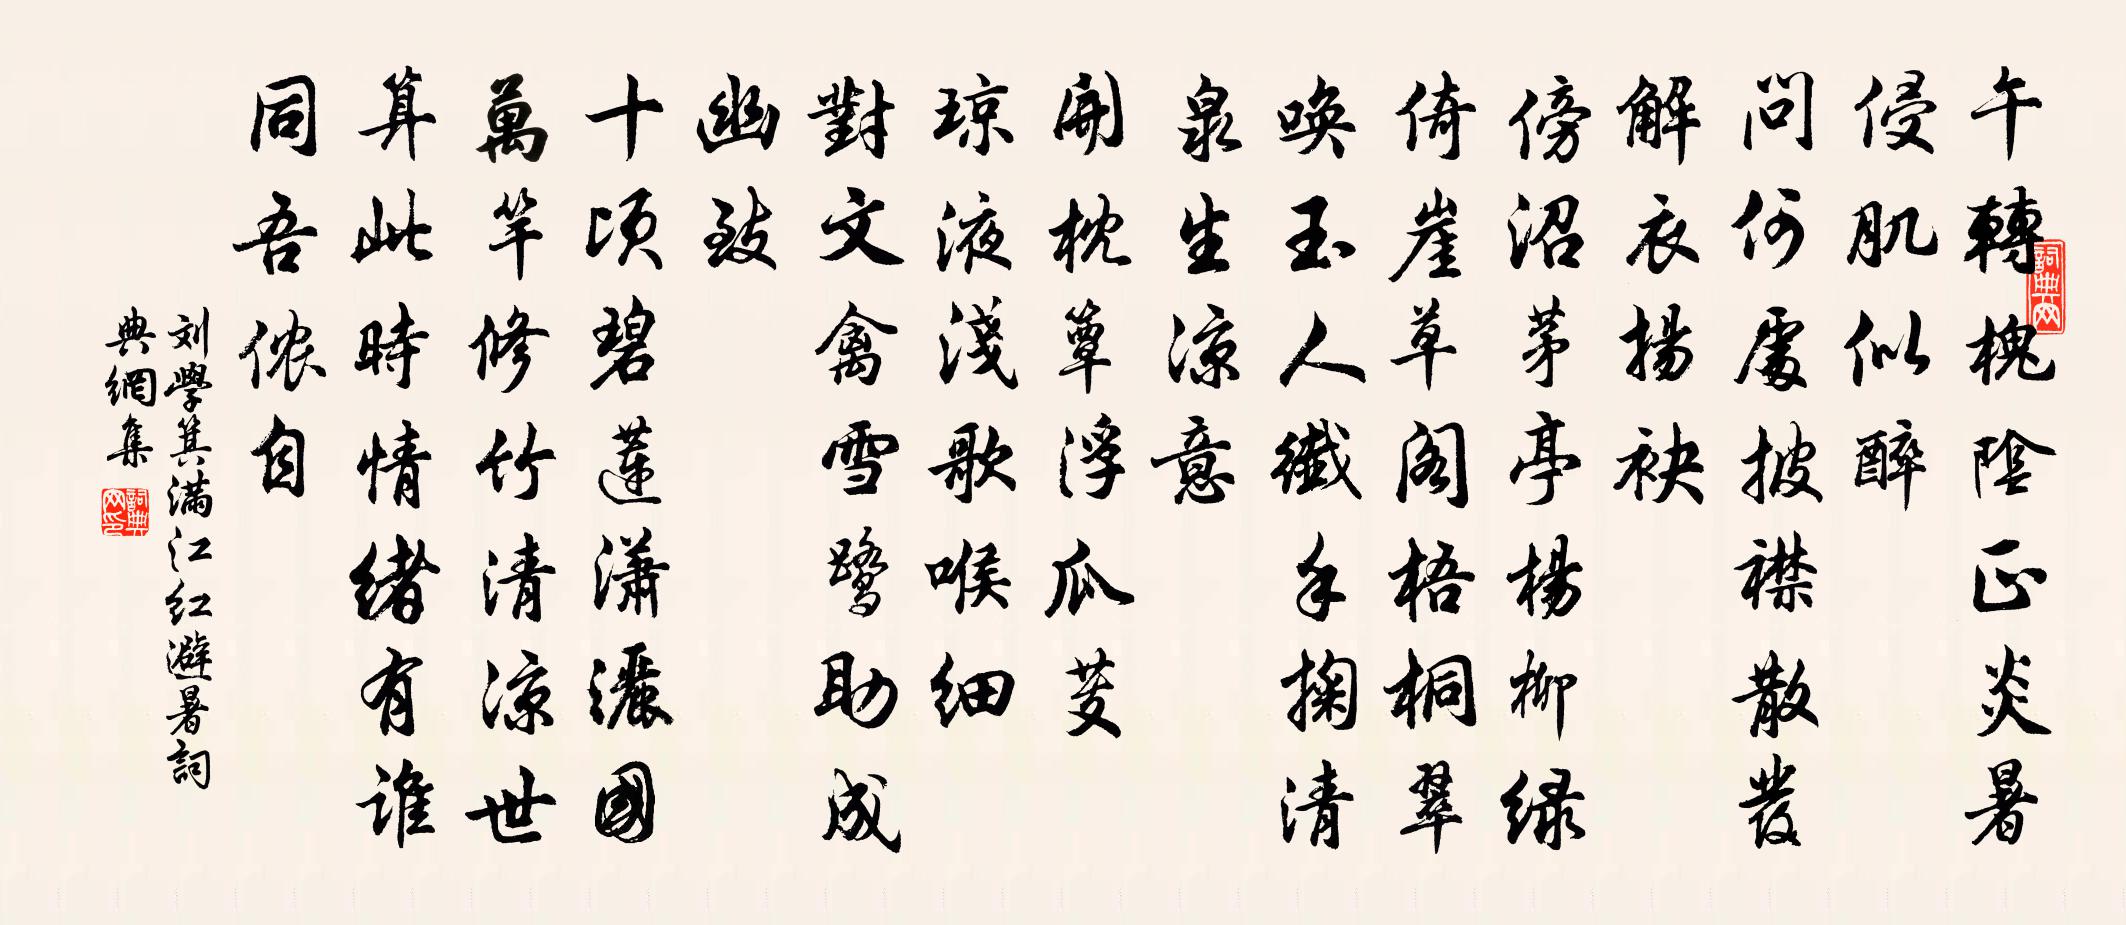 午轉槐陰正炎暑
侵肌似醉
問何處披襟散發
解衣揚袂
傍沼茅亭楊柳绿
倚崖草阁梧桐翠
唤玉人纖手掬清
泉生凉意
開枕簟浮瓜芰
琼液淺歌喉细
對文禽雪鹭助成
幽致
十顷碧蓮潇灑國
萬竿修竹清凉世
算此時情緒有谁
同吾侬自
刘學箕满江红避暑詞
典網集
詞典网
詞典网印